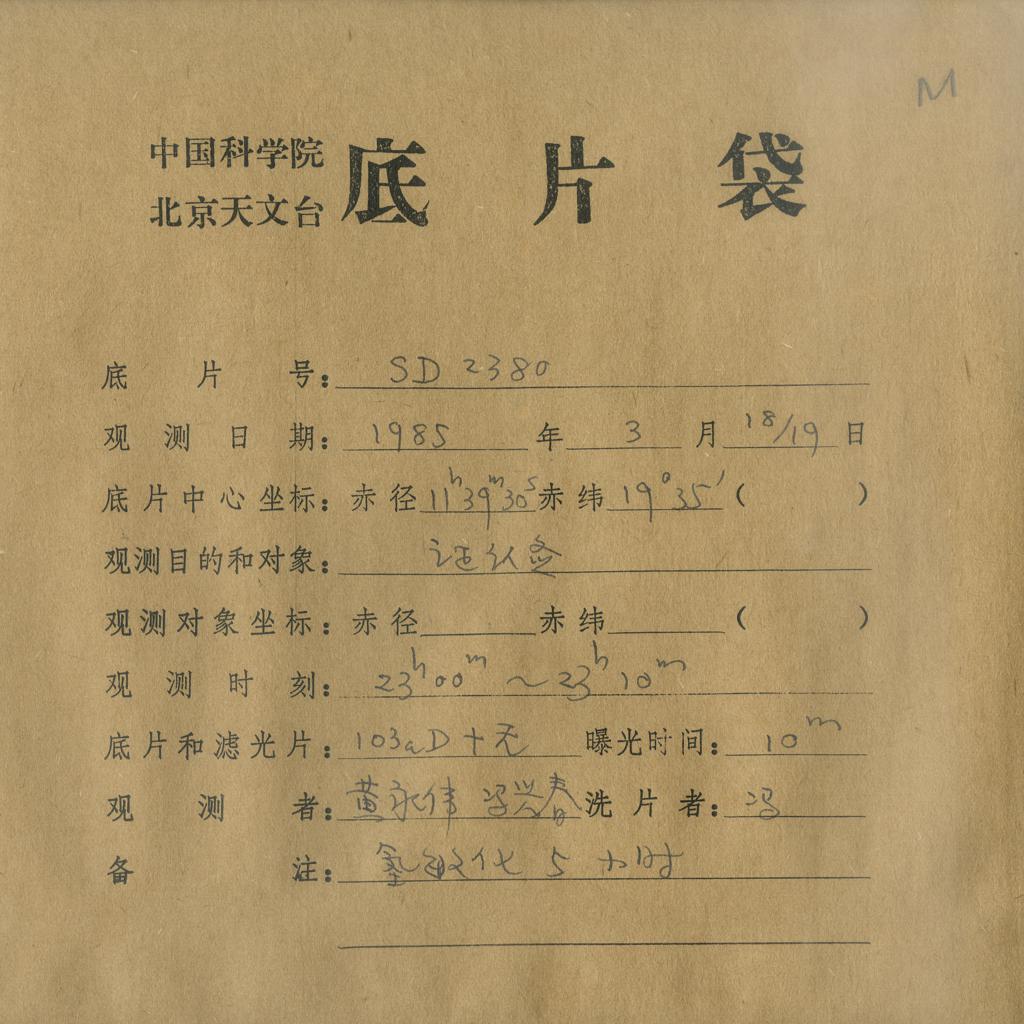 M
中国科学院
北京天文台
底片袋
底片号：SD 2380
观测日期：1985年3月18/19日
底片中心坐标：赤径11h39m30s赤纬19°35′（ ）
观测目的和对象：证认
观测对象坐标：赤径 赤纬 （ ）
观测时刻：23h00m～23h10m
底片和滤光片：103aD＋无 曝光时间：10m
观测者：黄永伟 冯兴春 洗片者：冯
备注：氢敏化 5 小时